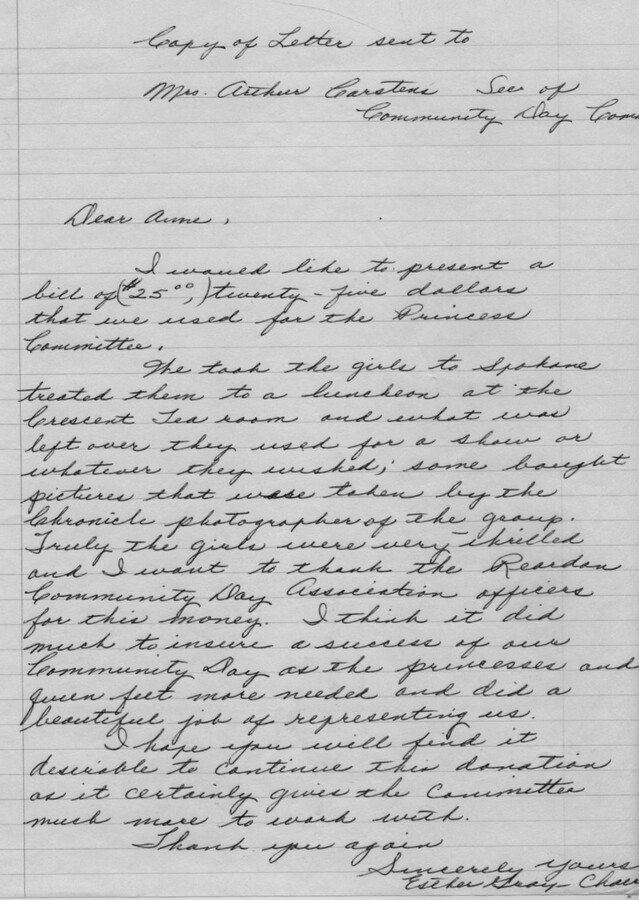 Copy of Letter sent to
Mrs. Arthur Carstens Sec of
Community Day Com
Dear Anne,
I would like to present a
bill of ($25⁰⁰,) twenty-five dollars
that we used for the Princess
Committee.
We took the girls to Spokane
treated them to a luncheon at the
Crescent Tea room and what was
left over they used for a show or
whatever they wished; some bought
pictures that were taken by the
Chronicle photographer of the group.
Truly the girls were very thrilled
and I want to thank the Reardan
Community Day Association officers
for this money. I think it did
much to insure a success of our
Community Day as the princesses and
queen feel more needed and did a
beautiful job of representing us.
I hope you will find it
desirable to continue this donation
as it certainly gives the Committee
much more to work with.
Thank you again
Sincerely yours
Esther Gray - Chair